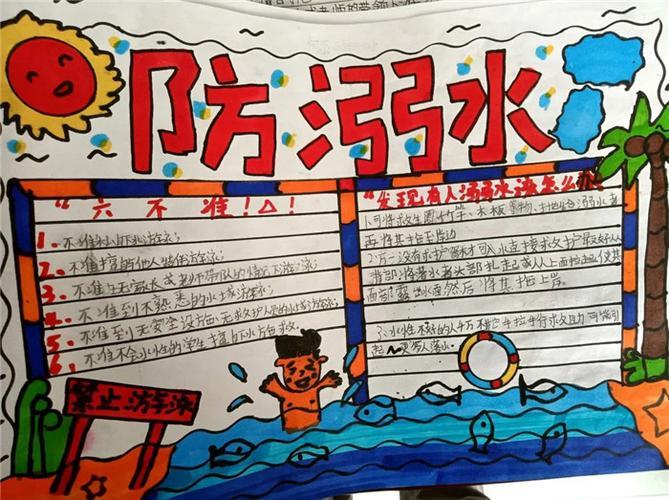 防溺水
"六不准!△!
1、不准私自下水游泳;
2、不准擅自与他人结伴游泳;
3、不准在无家长或老师带队的情况下游泳;
4、不准到不熟悉的水域游泳;
5、不准到无安全设施、无救护人员的水域游泳;
6、不准不会水性的学生擅自下水施救。
"发现有人溺水该怎么办
1.可将救生圈、竹竿、木板等物、抛给溺水者
再将其拖至岸边
2.万一没有救护器材可入水直接救护最好从人
背部将落水者头部托起或从上面拉起使其
面部露出水面然后将其拖上岸。
3.水性不好的人千万不能手拉手得救助可能引
起更多人落水
禁止游泳